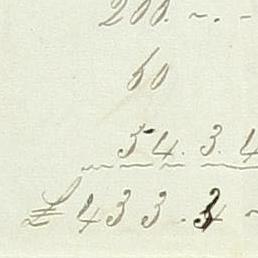 200. ~. -
60
54. 3. 4
£ 433. 3 ~